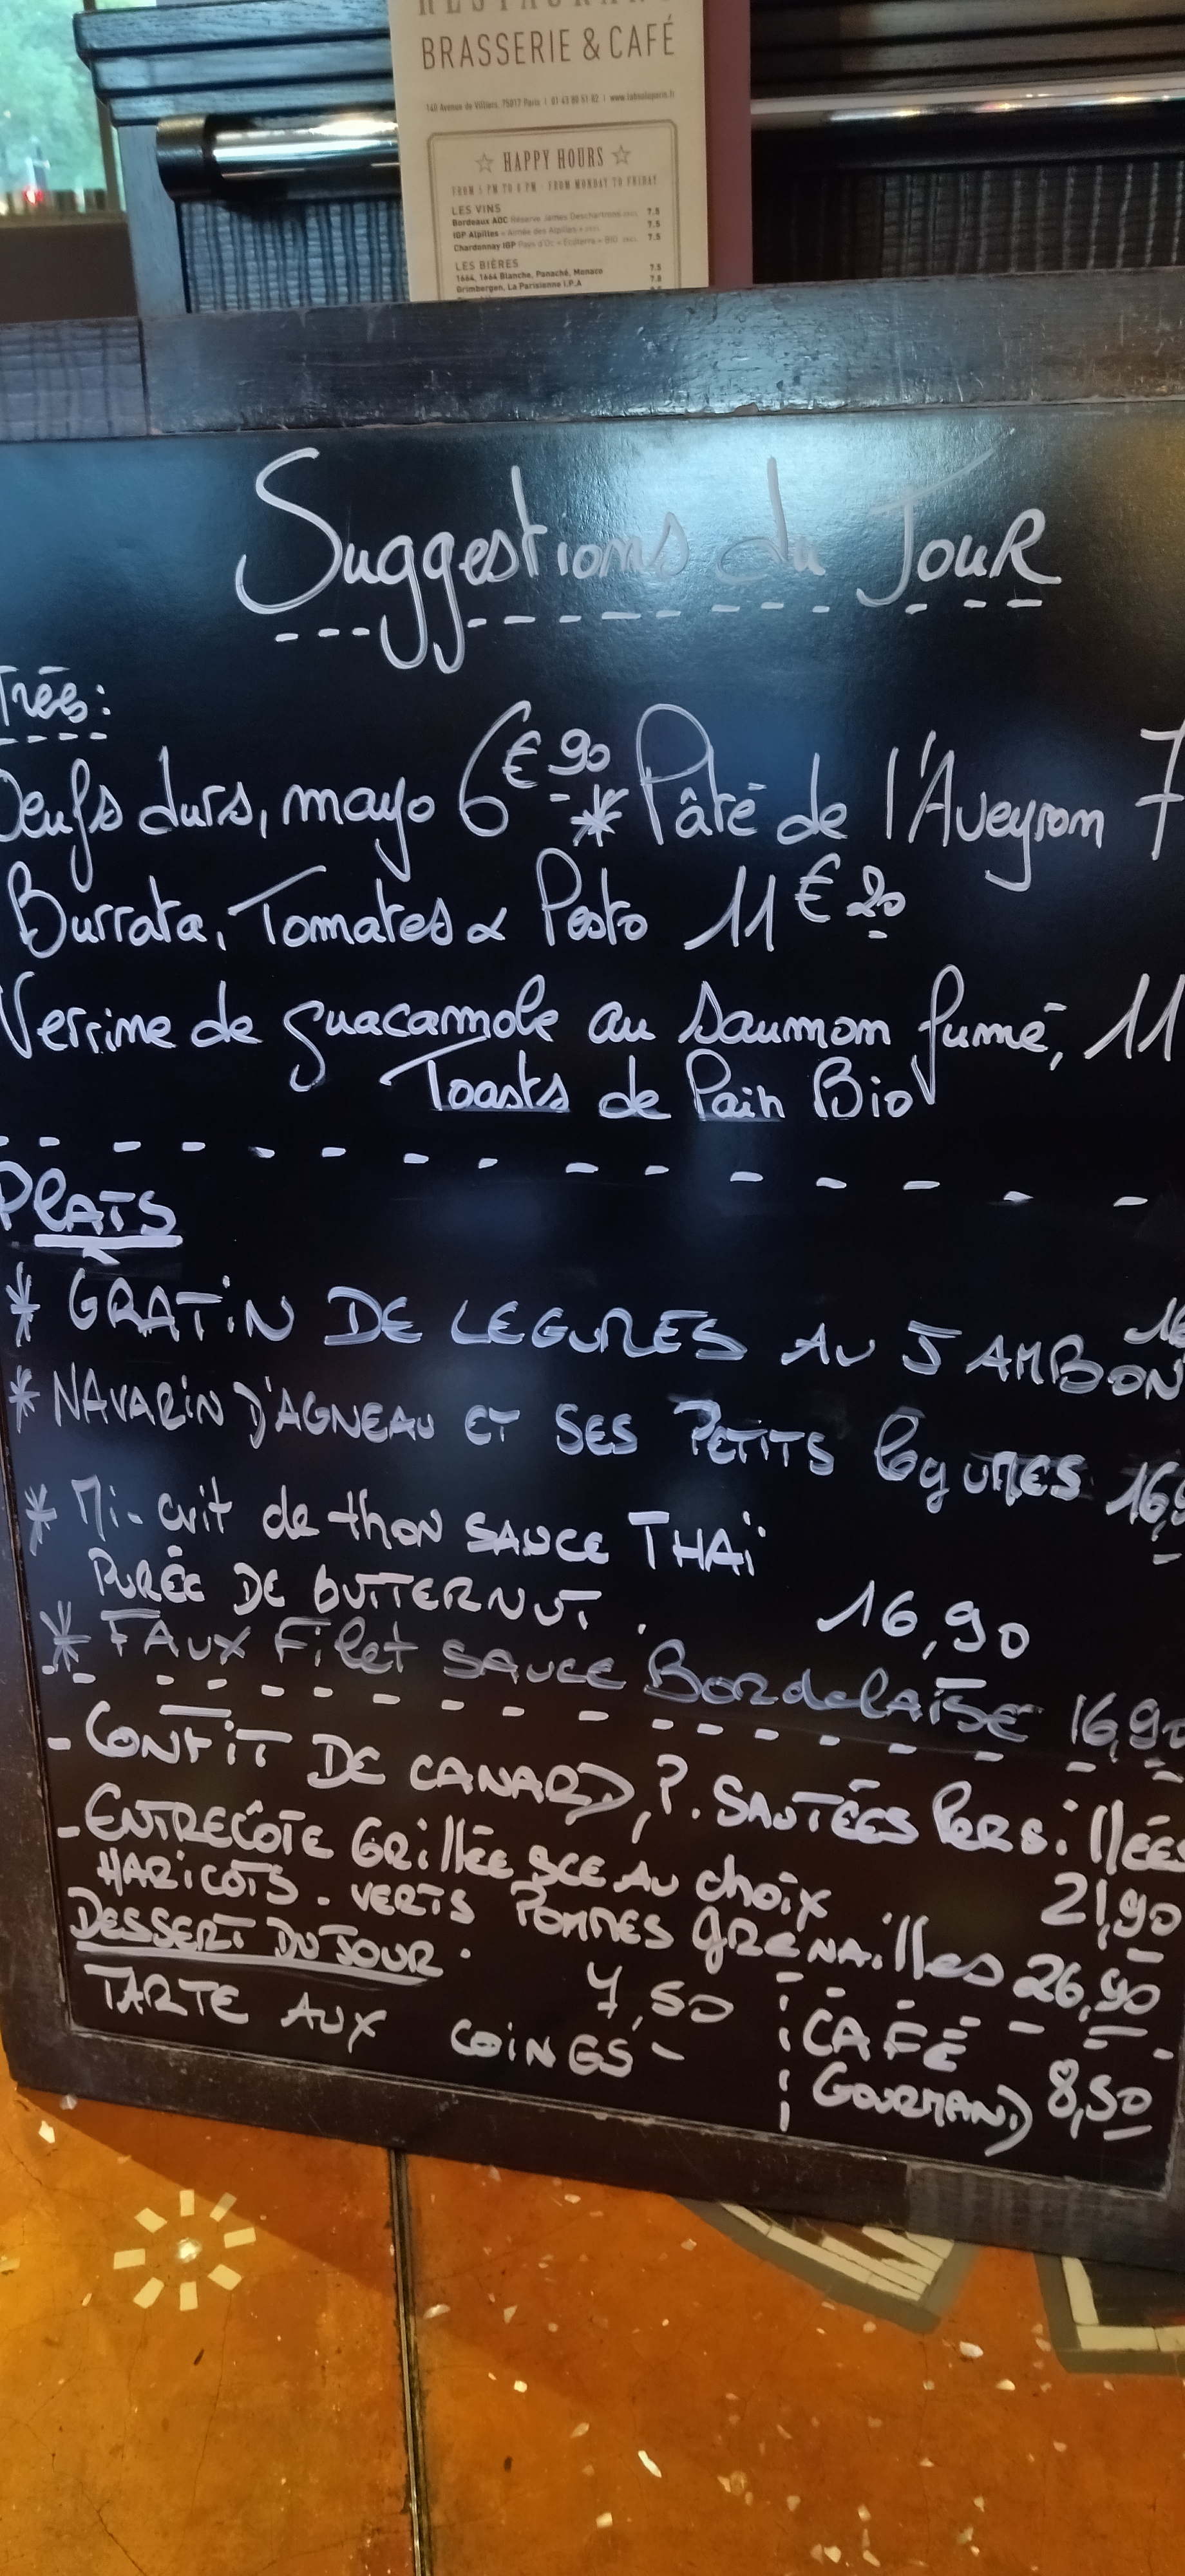 BRASSERIE & CAFÉ
140 Avenue de Villiers, 75017 Paris | 01 43 80 51 82 |
☆ HAPPY HOURS ☆
FROM 5 PM TO 8 PM - FROM MONDAY TO FRIDAY
LES VINS
Bordeaux AOC Réserve James Deschartrons 7.5
IGP Alpilles « Aimée des Alpilles » 7.5
Chardonnay IGP Pays d'Oc « Ecoterra » BIO 7.5
LES BIÈRES
1664, 1664 Blanche, Panaché, Monaco 7.5
Grimbergen, La Parisienne I.P.A 7.8
Suggestions du Jour
Trées:
Oeufs durs, mayo 6€90 * Pâté de l'Aveyron 7
Burrata, Tomates & Pesto 11€20
Verrine de guacamole au saumon fumé, 11
Toasts de Pain Bio
PLATS
* GRATIN DE LEGUMES AU JAMBON 16
* NAVARIN D'AGNEAU ET SES PETITS légumes 16,9
* Mi-cuit de thon SAUCE THAÏ
PURÉE DE BUTTERNUT. 16,90
* FAUX Filet SAUCE BordelAISE 16,90
- CONFIT DE CANARD, P. SAUTÉES PERSillÉES
21,90
- ENTRECÔTE Grillée SCE AU choix
HARICOTS-VERTS POMMES GRENAilles 26,90
DESSERT DU JOUR.
7,50
TARTE AUX COINGS -
CAFÉ
GOURMAND 8,50